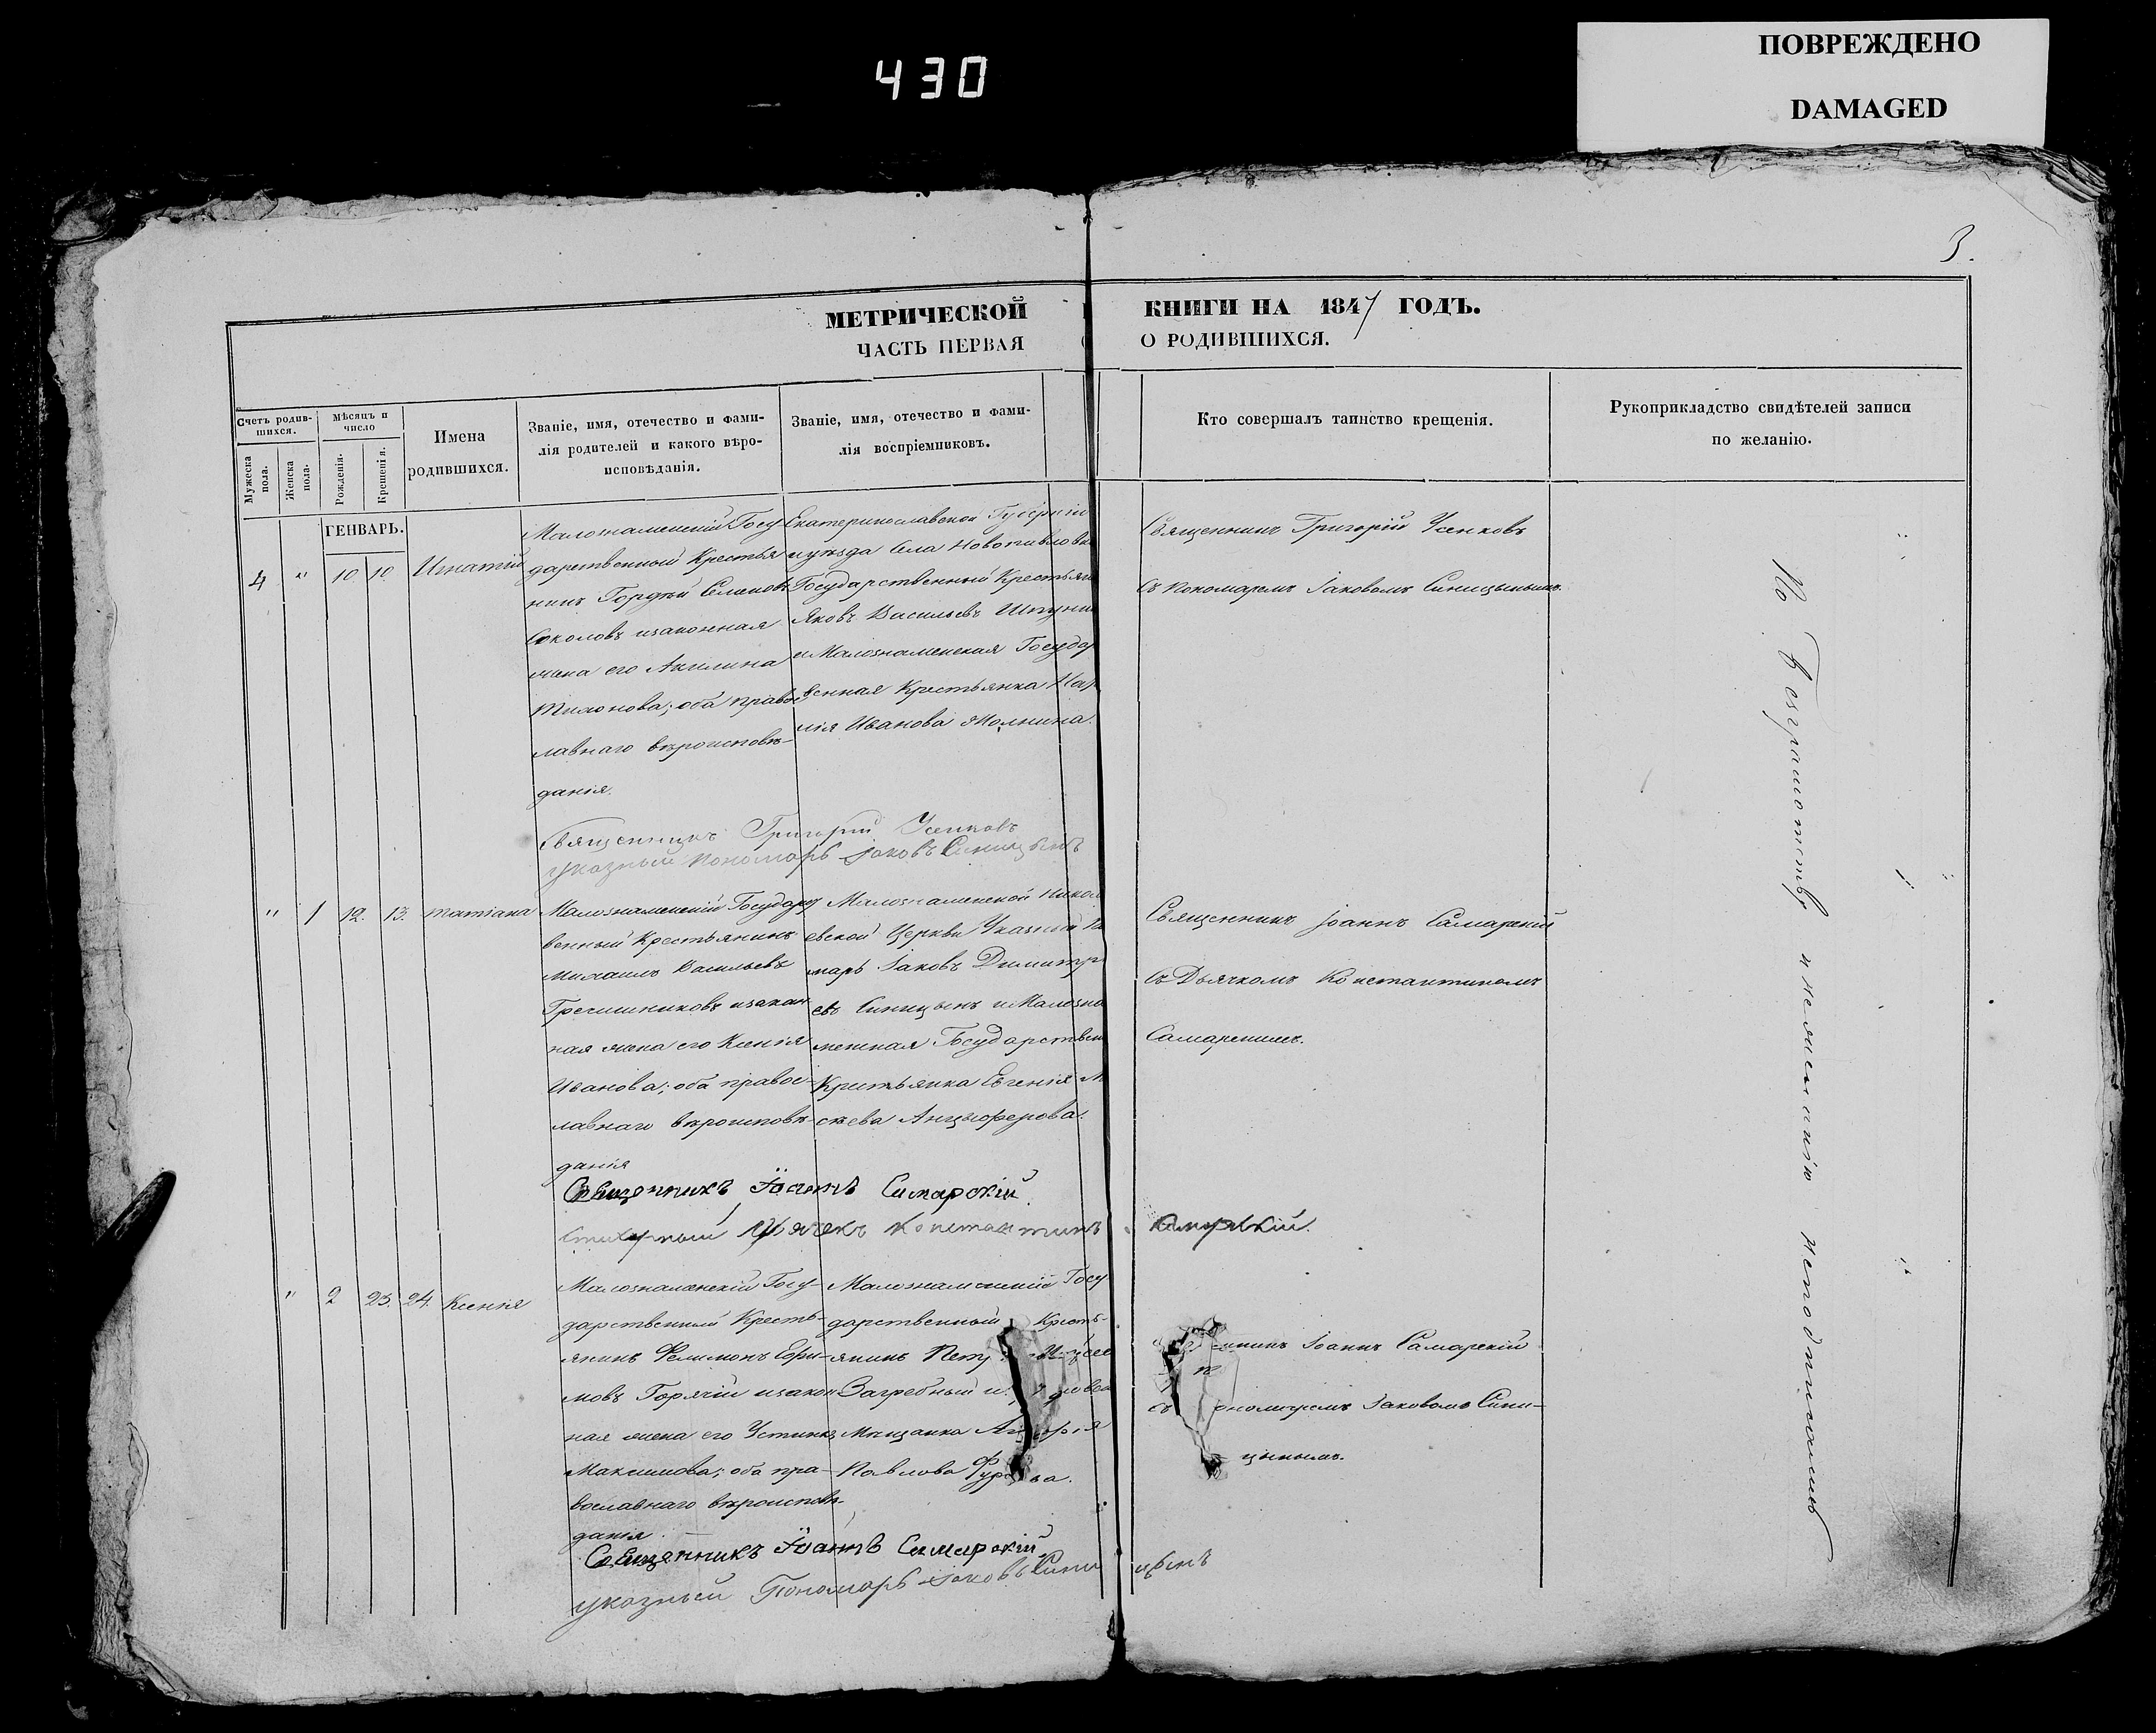 430
ПОВРЕЖДЕНО
DAMAGED
3.
МЕТРИЧЕСКОЙ КНИГИ НА 1847 ГОДЪ.
ЧАСТЬ ПЕРВАЯ О РОДИВШИХСЯ.
Счетъ родив-
шихся.
Мужеска пола.
Женска пола.
Мѣсяцъ и
число
Рожденія.
Крещенія.
Имена
родившихся.
Званіе, имя, отечество и фами-
лія родителей и какого вѣро-
исповѣданія.
Званіе, имя, отечество и фами-
лія воспріемниковъ.
Кто совершалъ таинство крещенія.
Рукоприкладство свидѣтелей записи
по желанію.
ГЕНВАРЬ.
4 " 10 10 Игнатій
Малознаменскій Госу
дарственный Крестья
нинъ Гордѣй Семеновъ
Соколовъ изаконная
жена его Акилина
Тихонова; оба правос
лавнаго вѣроисповѣ-
данія.
Екатеринославской Губерніи
иуѣзда Села Новопавловки
Государственный Крестьян
Яковъ Васильевъ
иМалознаменская Государ
венная Крестьянка
Иванова
Священникъ Григорій Усенковъ
съ пономаремъ Іаковомъ Синицынымъ.
Священникъ Григорій Усенковъ
указный пономарь Іаковъ Синицынъ
" 1 12. 13. Татіана
Малознаменскій Государ
венный Крестьянинъ
Михаилъ Васильевъ
Гречишниковъ изакон
ная жена его Ксенія
Иванова; оба правос-
лавнаго вѣроисповѣ-
данія
Малознаменской Никол
евской Церкви Указный По
марь Іаковъ Димитрі
евъ Синицынъ иМалозна
менская Государствен
Крестьянка Евгенія
сѣева Анцыферова.
Священникъ Іоаннъ Самарскій
съ Дьячкомъ Константиномъ
Самарскимъ.
Священникъ Іоаннъ Самарскій
Стихарный Дьячекъ Константинъ Самарскій.
" 2 23. 24. Ксенія
Малознаменскій Госу-
дарственный Кресть-
янинъ Филимонъ Ефи-
мовъ Горячій изакон
ная жена его Устинія
Максимова; оба пра-
вославнаго вѣроисповѣ-
данія
Малознаменскій Госу
дарственный Кресть-
янинъ Петръ
Загребный и
Мѣщанка
Павлова
Іоаннъ Самарскій
съ Іаковомъ Сини-
цынымъ.
Священникъ Іоаннъ Самарскій
указный Пономарь Іаковъ Синицынъ
По безграмотству и нежеланію неподписались